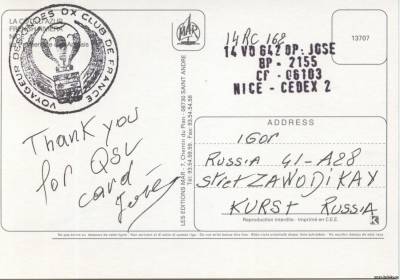 LA COTE D'AZUR
VOYAGEUR DES ONDES DX CLUB DE FRANCE
MAR
LES EDITIONS MAR - 7, Chemin du Plan - 06730 SAINT ANDRE
14RC 168
14 VO 642 OP: JOSE
BP - 2155
CF - 06103
NICE - CEDEX 2
13707
Thank you
for QSL
card
José
ADDRESS
IGOR
RUSSIA 41-A28
stret ZAWODIKAY
KURST RUSSIA
Reproduction interdite - Imprimé en C.E.E.